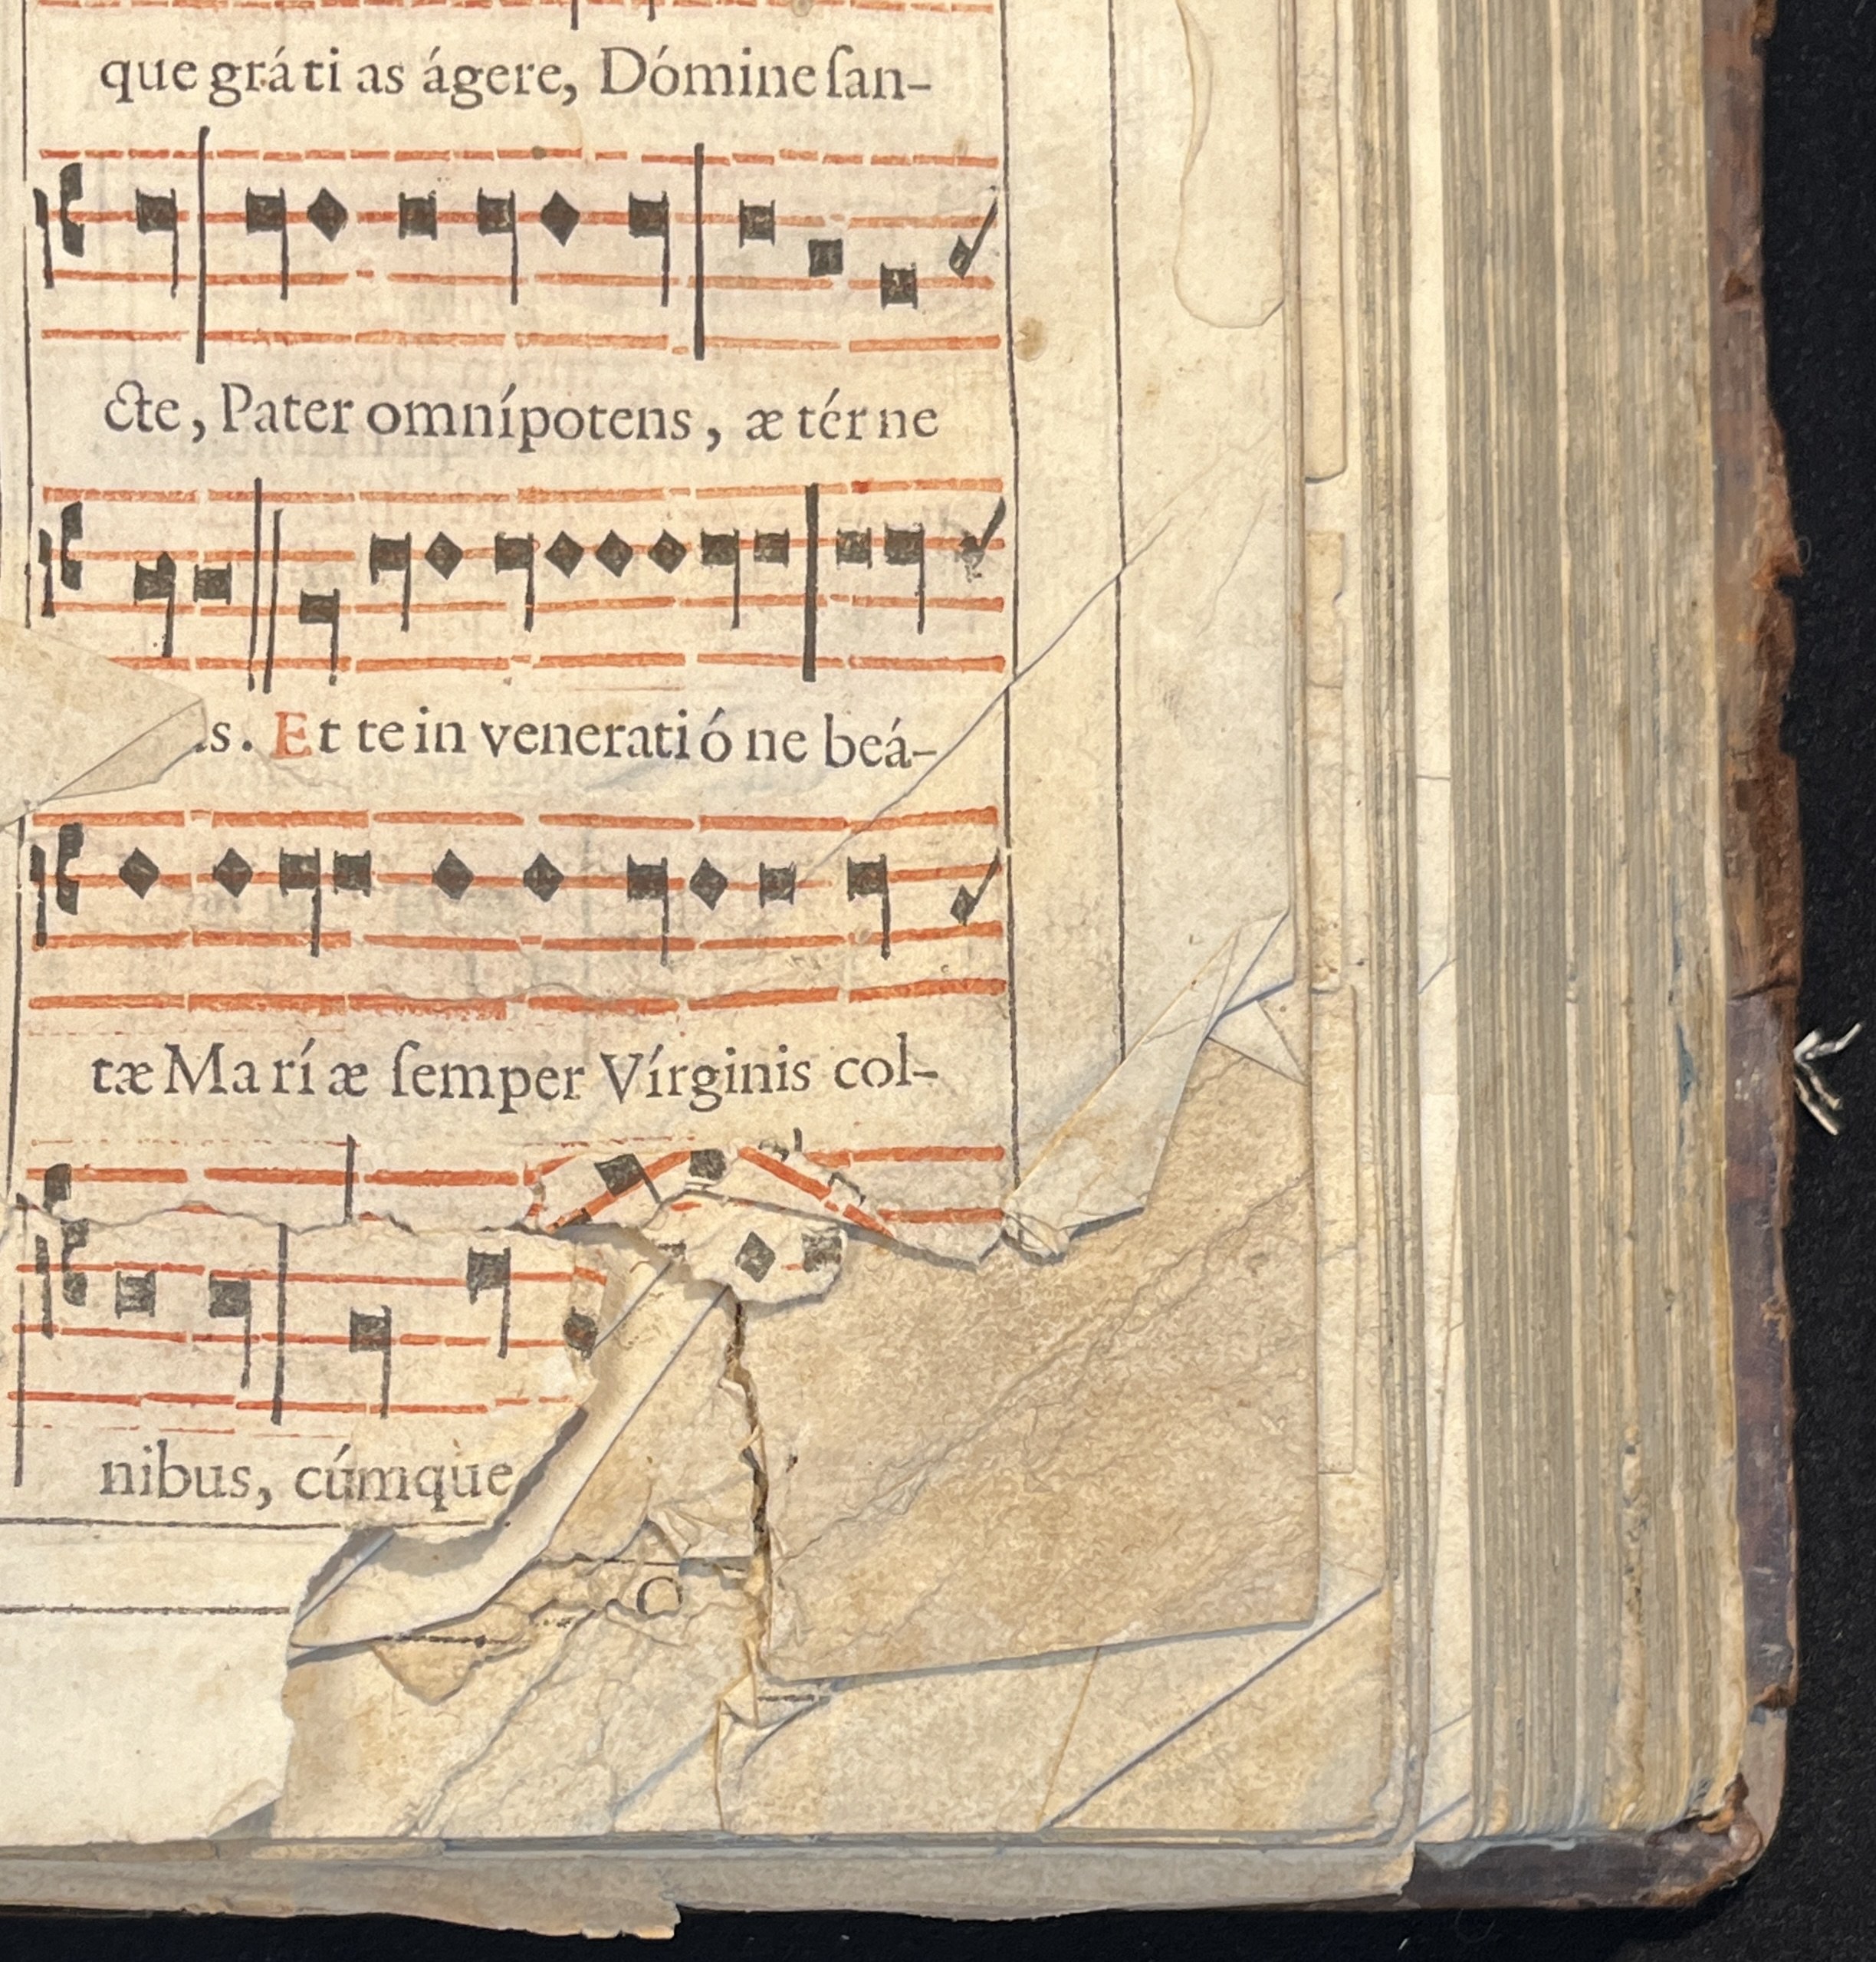 que gráti as ágere, Dómine ſan-
cte, Pater omnípotens, æ térne
s. Et te in venerati ó ne beá-
tæ Ma rí æ ſemper Vírginis col-
nibus, cúmque